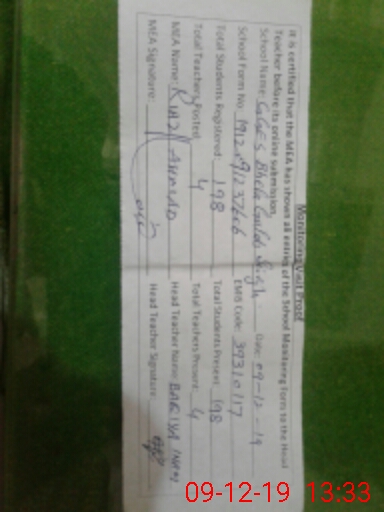 Monitoring Visit Proof
It is certified that the MEA has shown all entries of the School Monitoring Form to the Head
Teacher before its online submission.
School Name: GGES Date: 09-12-19
School Form No. EMIS Code: 39310117
Total Students Registered: 198 Total Students Present: 198
Total Teachers Posted: 4 Total Teachers Present: 4
MEA Name: Riaz Ahmad Head Teacher Name:
MEA Signature: Head Teacher Signature:
09-12-19 13:33